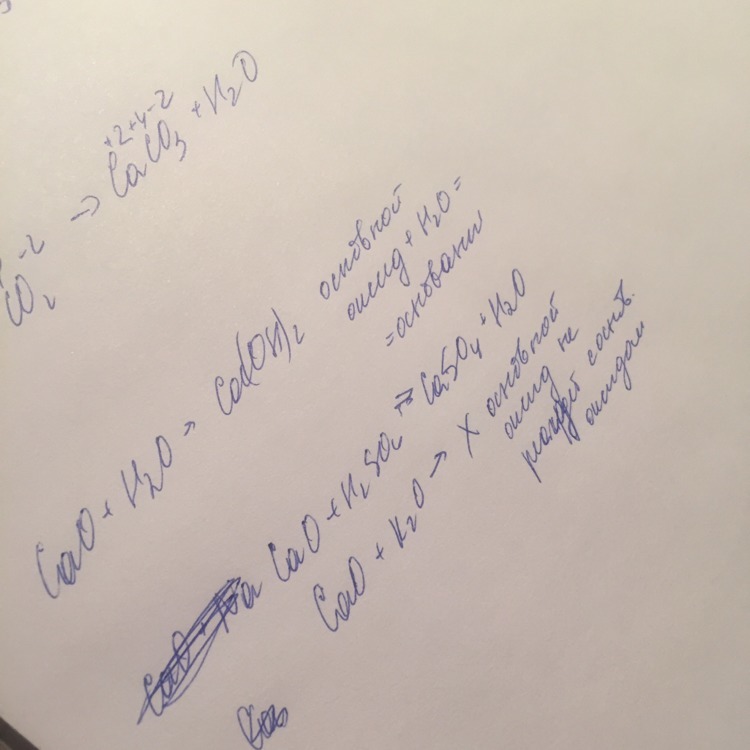 +2+4-2
-2
CO₂ → CaCO₃ + H₂O
CaO + H₂O → Ca(OH)₂ основной
оксид + H₂O =
= основани
CaO + H₂SO₄ → CaSO₄ + H₂O
CaO + K₂O → X основной
оксид не
с основ.
оксидом